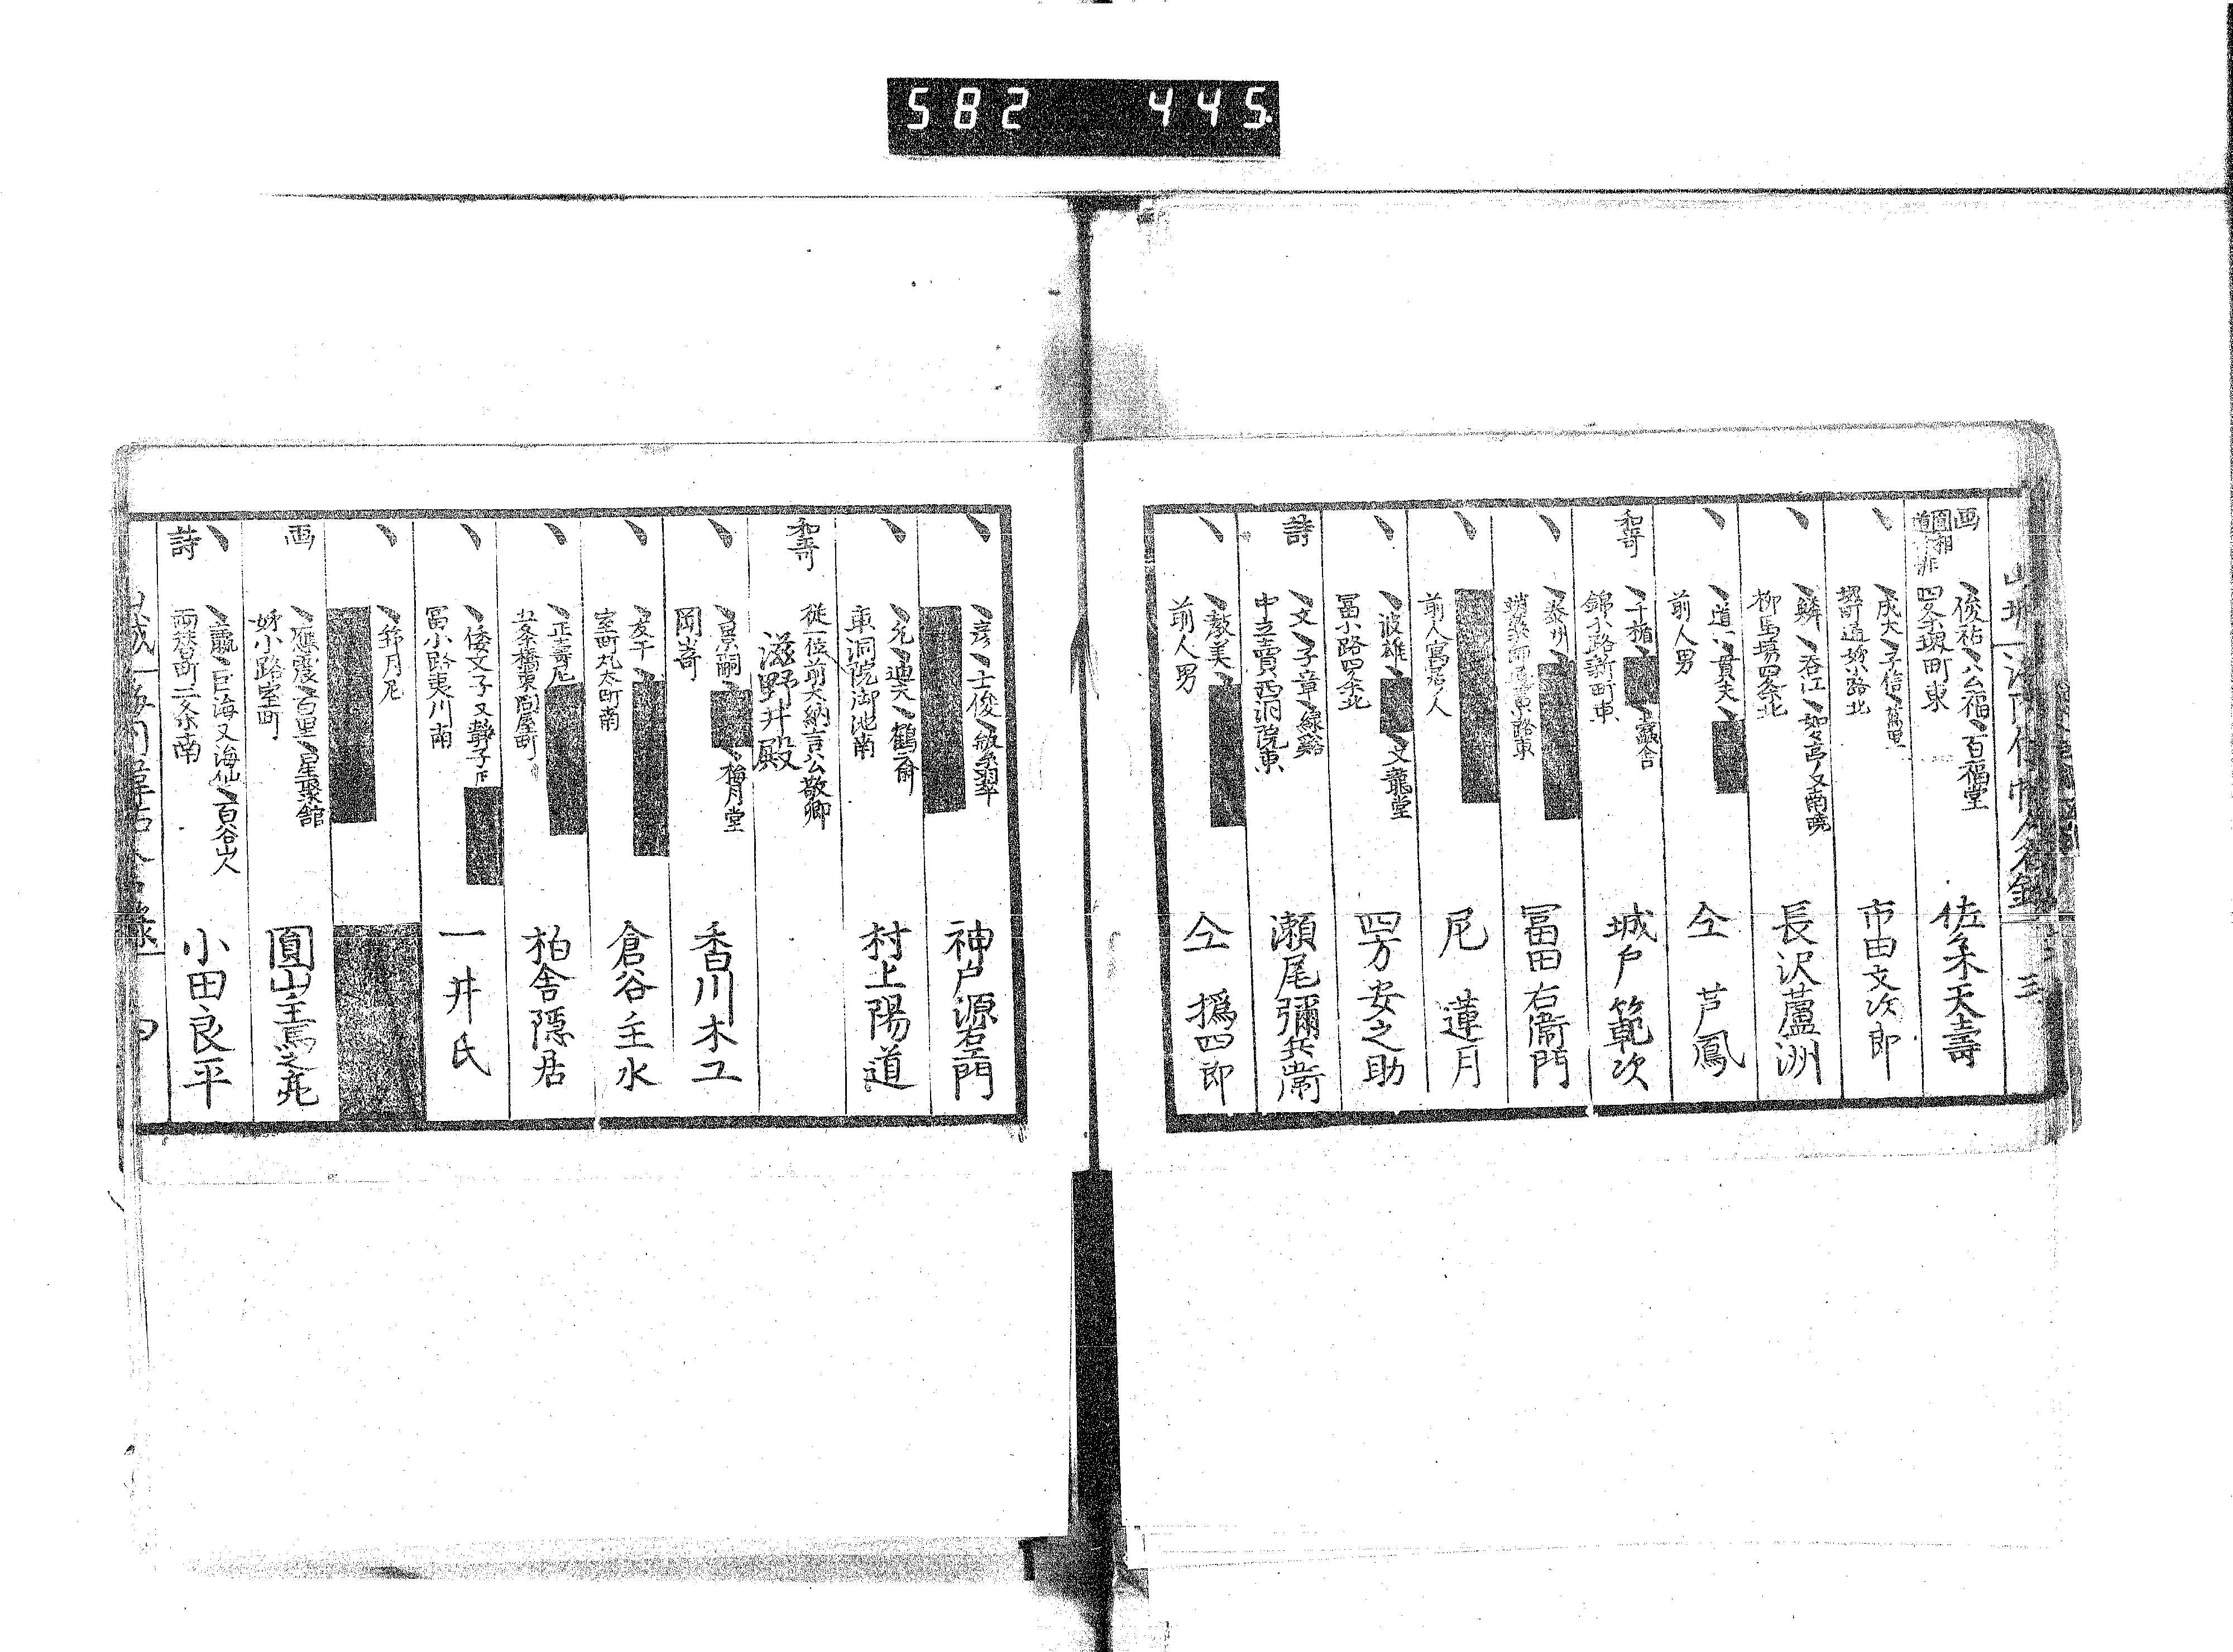 582 445
画
俊祐 公福 百福堂
四条堺町東
佐々木天壽
成大 子信 萬里
市田文次郎
鱗 呑江 如々亭 又南暁
柳馬場四条北
長沢蘆洲
貫夫
前人男
仝 芦鳳
和哥
千楯 蠡舎
錦小路新町東
城戸範次
泰州
冨田右衛門
前人寓居ノ人
尼 蓮月
波雄 文龍堂
冨小路四条北
四方安之助
詩
文 子章 緑谿
中立賣西洞院東
瀬尾彌兵衛
敎美
前人男
仝 撝四郎
彦 士俊 敬翠
神戸源右エ門
允迪 天 鶴齋
東洞院御池南
村上陽道
和哥
従一位前大納言公敬卿
滋野井殿
景嗣 梅月堂
岡嵜
香川木工
友平
室町丸太町南
倉谷主水
正壽尼
五条橋東問屋町
柏舎隠居
倭文子又静子下
冨小路夷川南
一井氏
錦月尼
画
應震 百里 星聚館
姉小路室町
圓山主馬之亮
詩
巨海又海仙 百谷山人
両替町二条南
小田良平